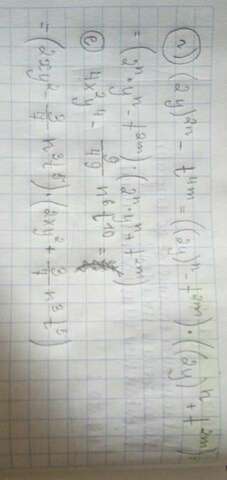 л) (2y)²ⁿ - t⁴ᵐ = ((2y)ⁿ - t²ᵐ) · ((2y)ⁿ + t²ᵐ)
= (2ⁿ · yⁿ - t²ᵐ) · (2ⁿ · yⁿ + t²ᵐ)
e) 4x²y⁴ - 9/49 n⁶ t¹⁰ =
= (2xy² - 3/7 n³ t⁵) · (2xy² + 3/7 n³ t⁵)